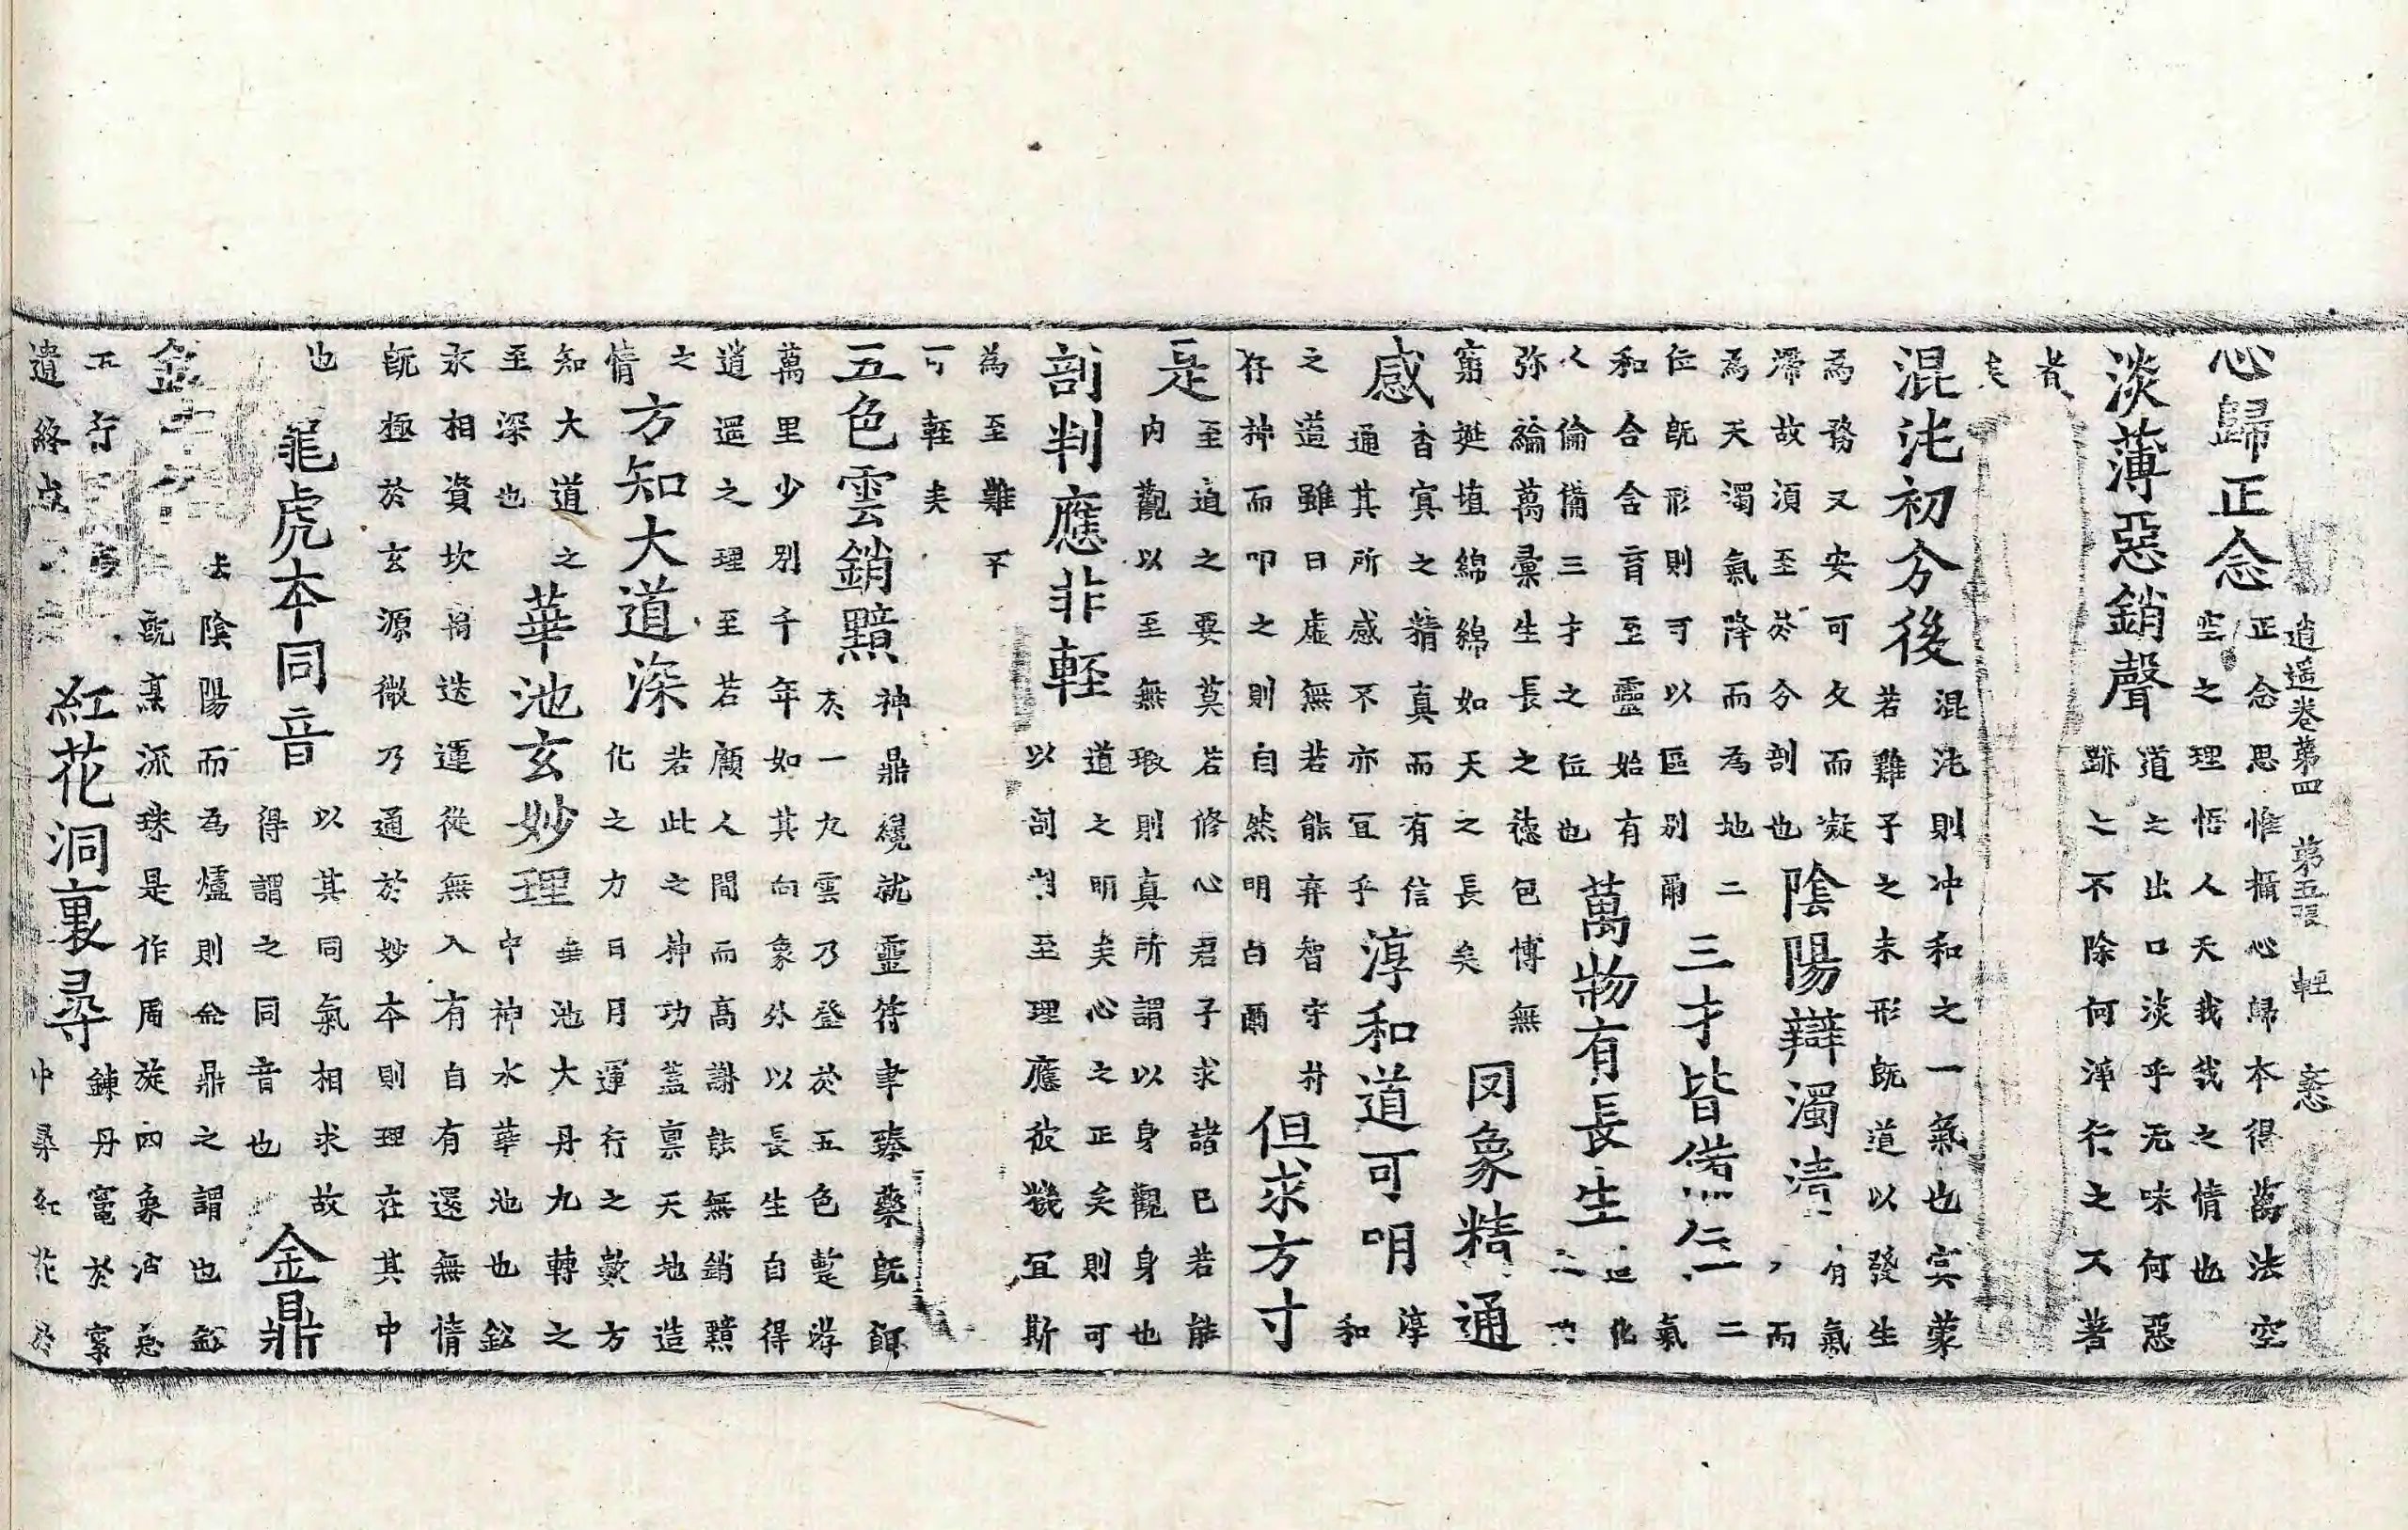 逍遥卷第四 第五張 輕 悉
心歸正念
正念思惟攝心歸本得萬法空
空之理悟人天我我之情也
淡薄惡銷聲
道之出口淡乎无味何惡
跡之不除何淨行之又著
者
矣
混沌初分後
混沌則冲和之一氣也㝠蒙
若雞子之未形旣道以發生
為務又安可久而凝
滯故須至於分剖也
陰陽辯濁清
有氣
而
為天濁氣降而為地二
位旣形則可以區別爾
三才皆俻
二
氣
和合含育至靈始有
人倫備三才之位也
萬物有長生
造化
弥綸萬彙生長之德包博無
窮挻埴綿綿如天之長矣
罔象精通
感
杳㝠之精真而有信
通其所感不亦冝乎
淳和道可明
淳
和
之道雖曰虛無若能弃智守
存神而叩之則自然明白爾
但求方寸
是
至道之要莫若修心君子求諸己若能
内觀以至無瑕則真所謂以身觀身也
剖判應非輕
道之明矣心之正矣則可
以剖判至理應彼幾冝斯
為至難不
可輕矣
五色雲銷黯
神鼎纔就靈符聿臻藥旣餌
矣一九雲乃登於五色蹔游
萬里少別千年如其向象外以長生自得
逍遥之理至若顧人間而高謝能無銷黯
之
情
方知大道深
若此之神功蓋禀天地造
化之方日月運行之數方
知大道之
至深也
華池玄妙理
華池大丹九轉之
中神水華池也鈆
汞相資坎离迭運從無入有自有還無情
旣極於玄源微乃通於妙本則理在其中
也
龍虎本同音
以其同氣相求故
得謂之同音也
金鼎
法陰陽而為爐則金鼎之謂也鈆
旣烹流珠是作周旋四象
五行
紅花洞裏尋
錬丹竈於
中尋紅花於